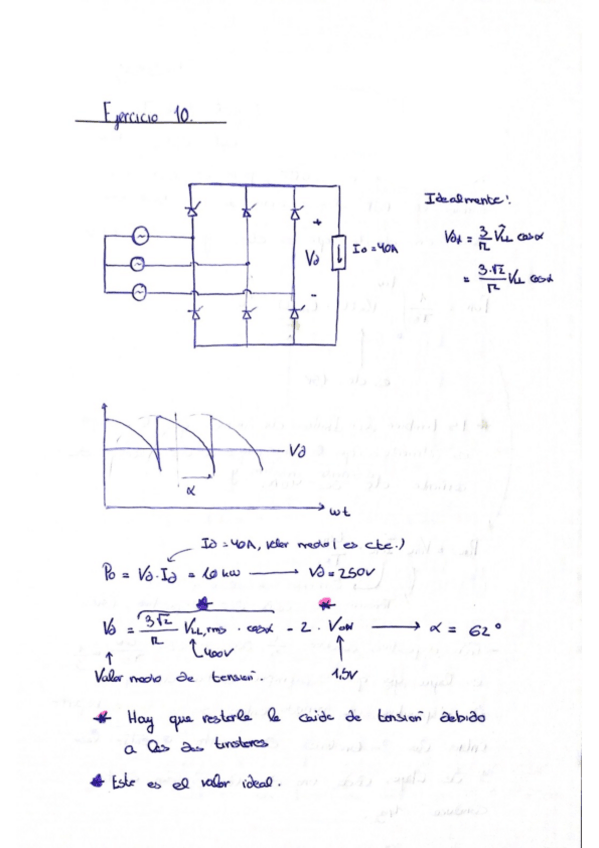 Ejercicio 10.
Idealmente:
Vdα = 3/π V̂LL cosα
= 3·√2/π VLL cosα
+
Vd
-
Id = 40A
Vd
α
wt
Id = 40A, valor medio (es cte.)
Po = Vd · Id = 10 kW → Vd = 250V
Vd = 3√2/π VLL,rms · cosα - 2 · VON → α = 62°
400V
1,5V
Valor medio de tensión.
* Hay que restarle la caída de tensión debido
a los dos tiristores
* Este es el valor ideal.